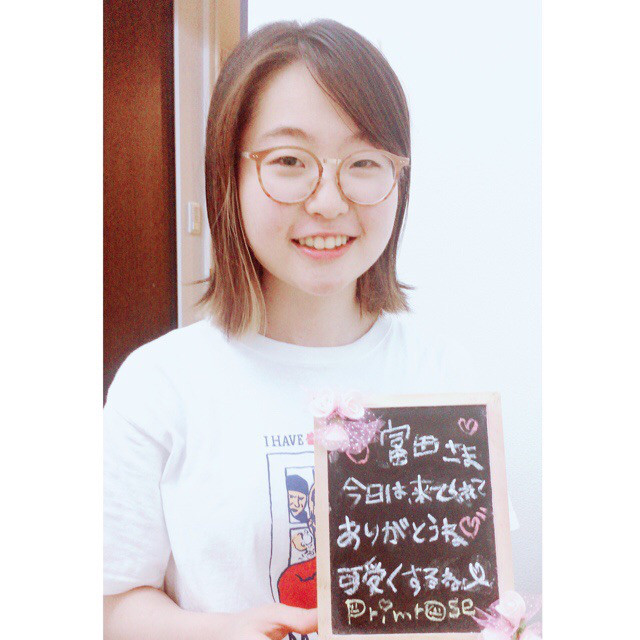 I HAVE
富田さま
今日は、来てくれて
ありがとうね
可愛くするね
Primr@se